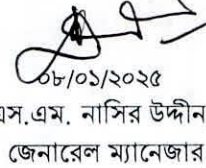 ০৮/০১/২০২৫
এস.এম. নাসির উদ্দীন
জেনারেল ম্যানেজার